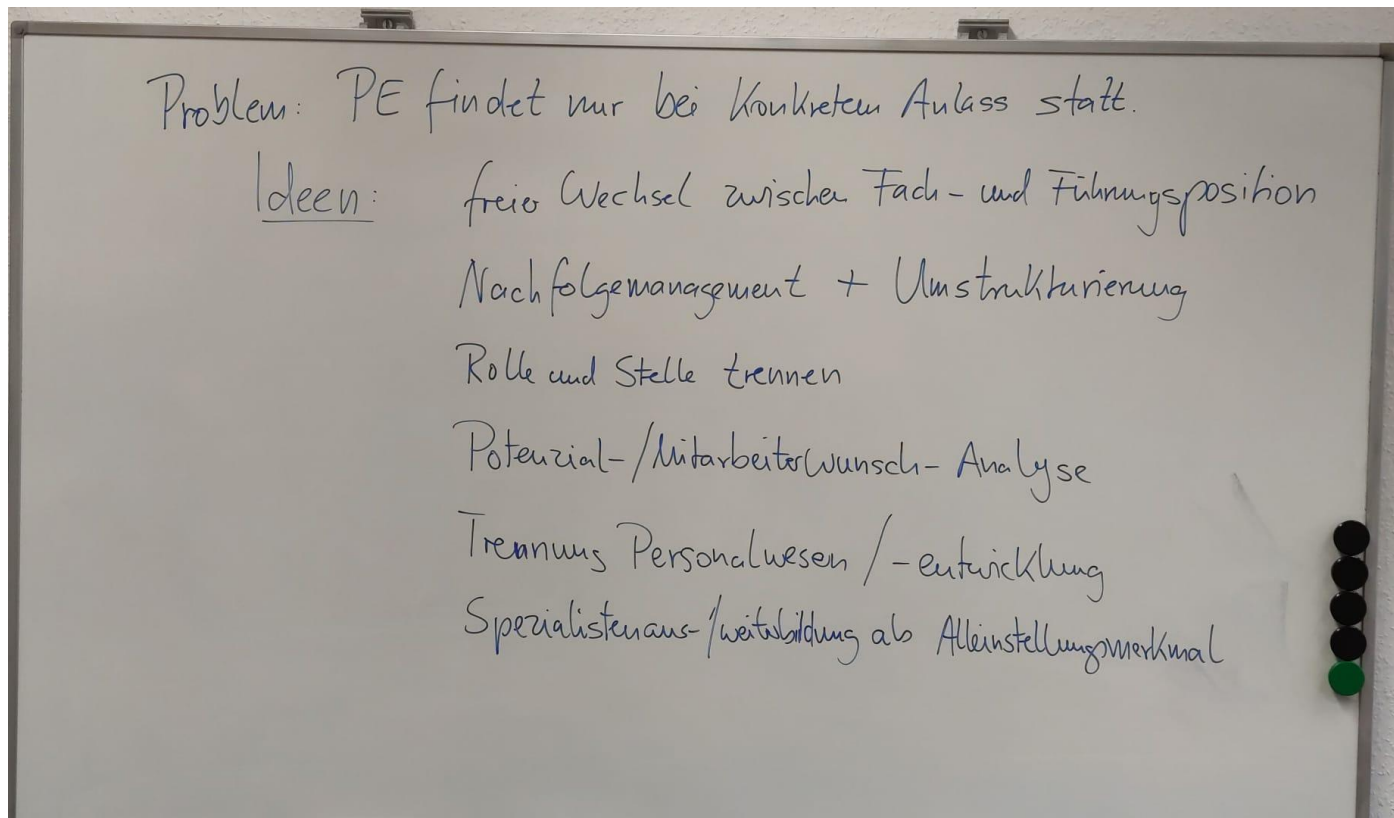 Problem: PE findet nur bei konkretem Anlass statt.
Ideen: freier Wechsel zwischen Fach- und Führungsposition
Nachfolgemanagement + Umstrukturierung
Rolle und Stelle trennen
Potenzial-/Mitarbeiterwunsch-Analyse
Trennung Personalwesen/-entwicklung
Spezialistenaus-/weiterbildung als Alleinstellungsmerkmal